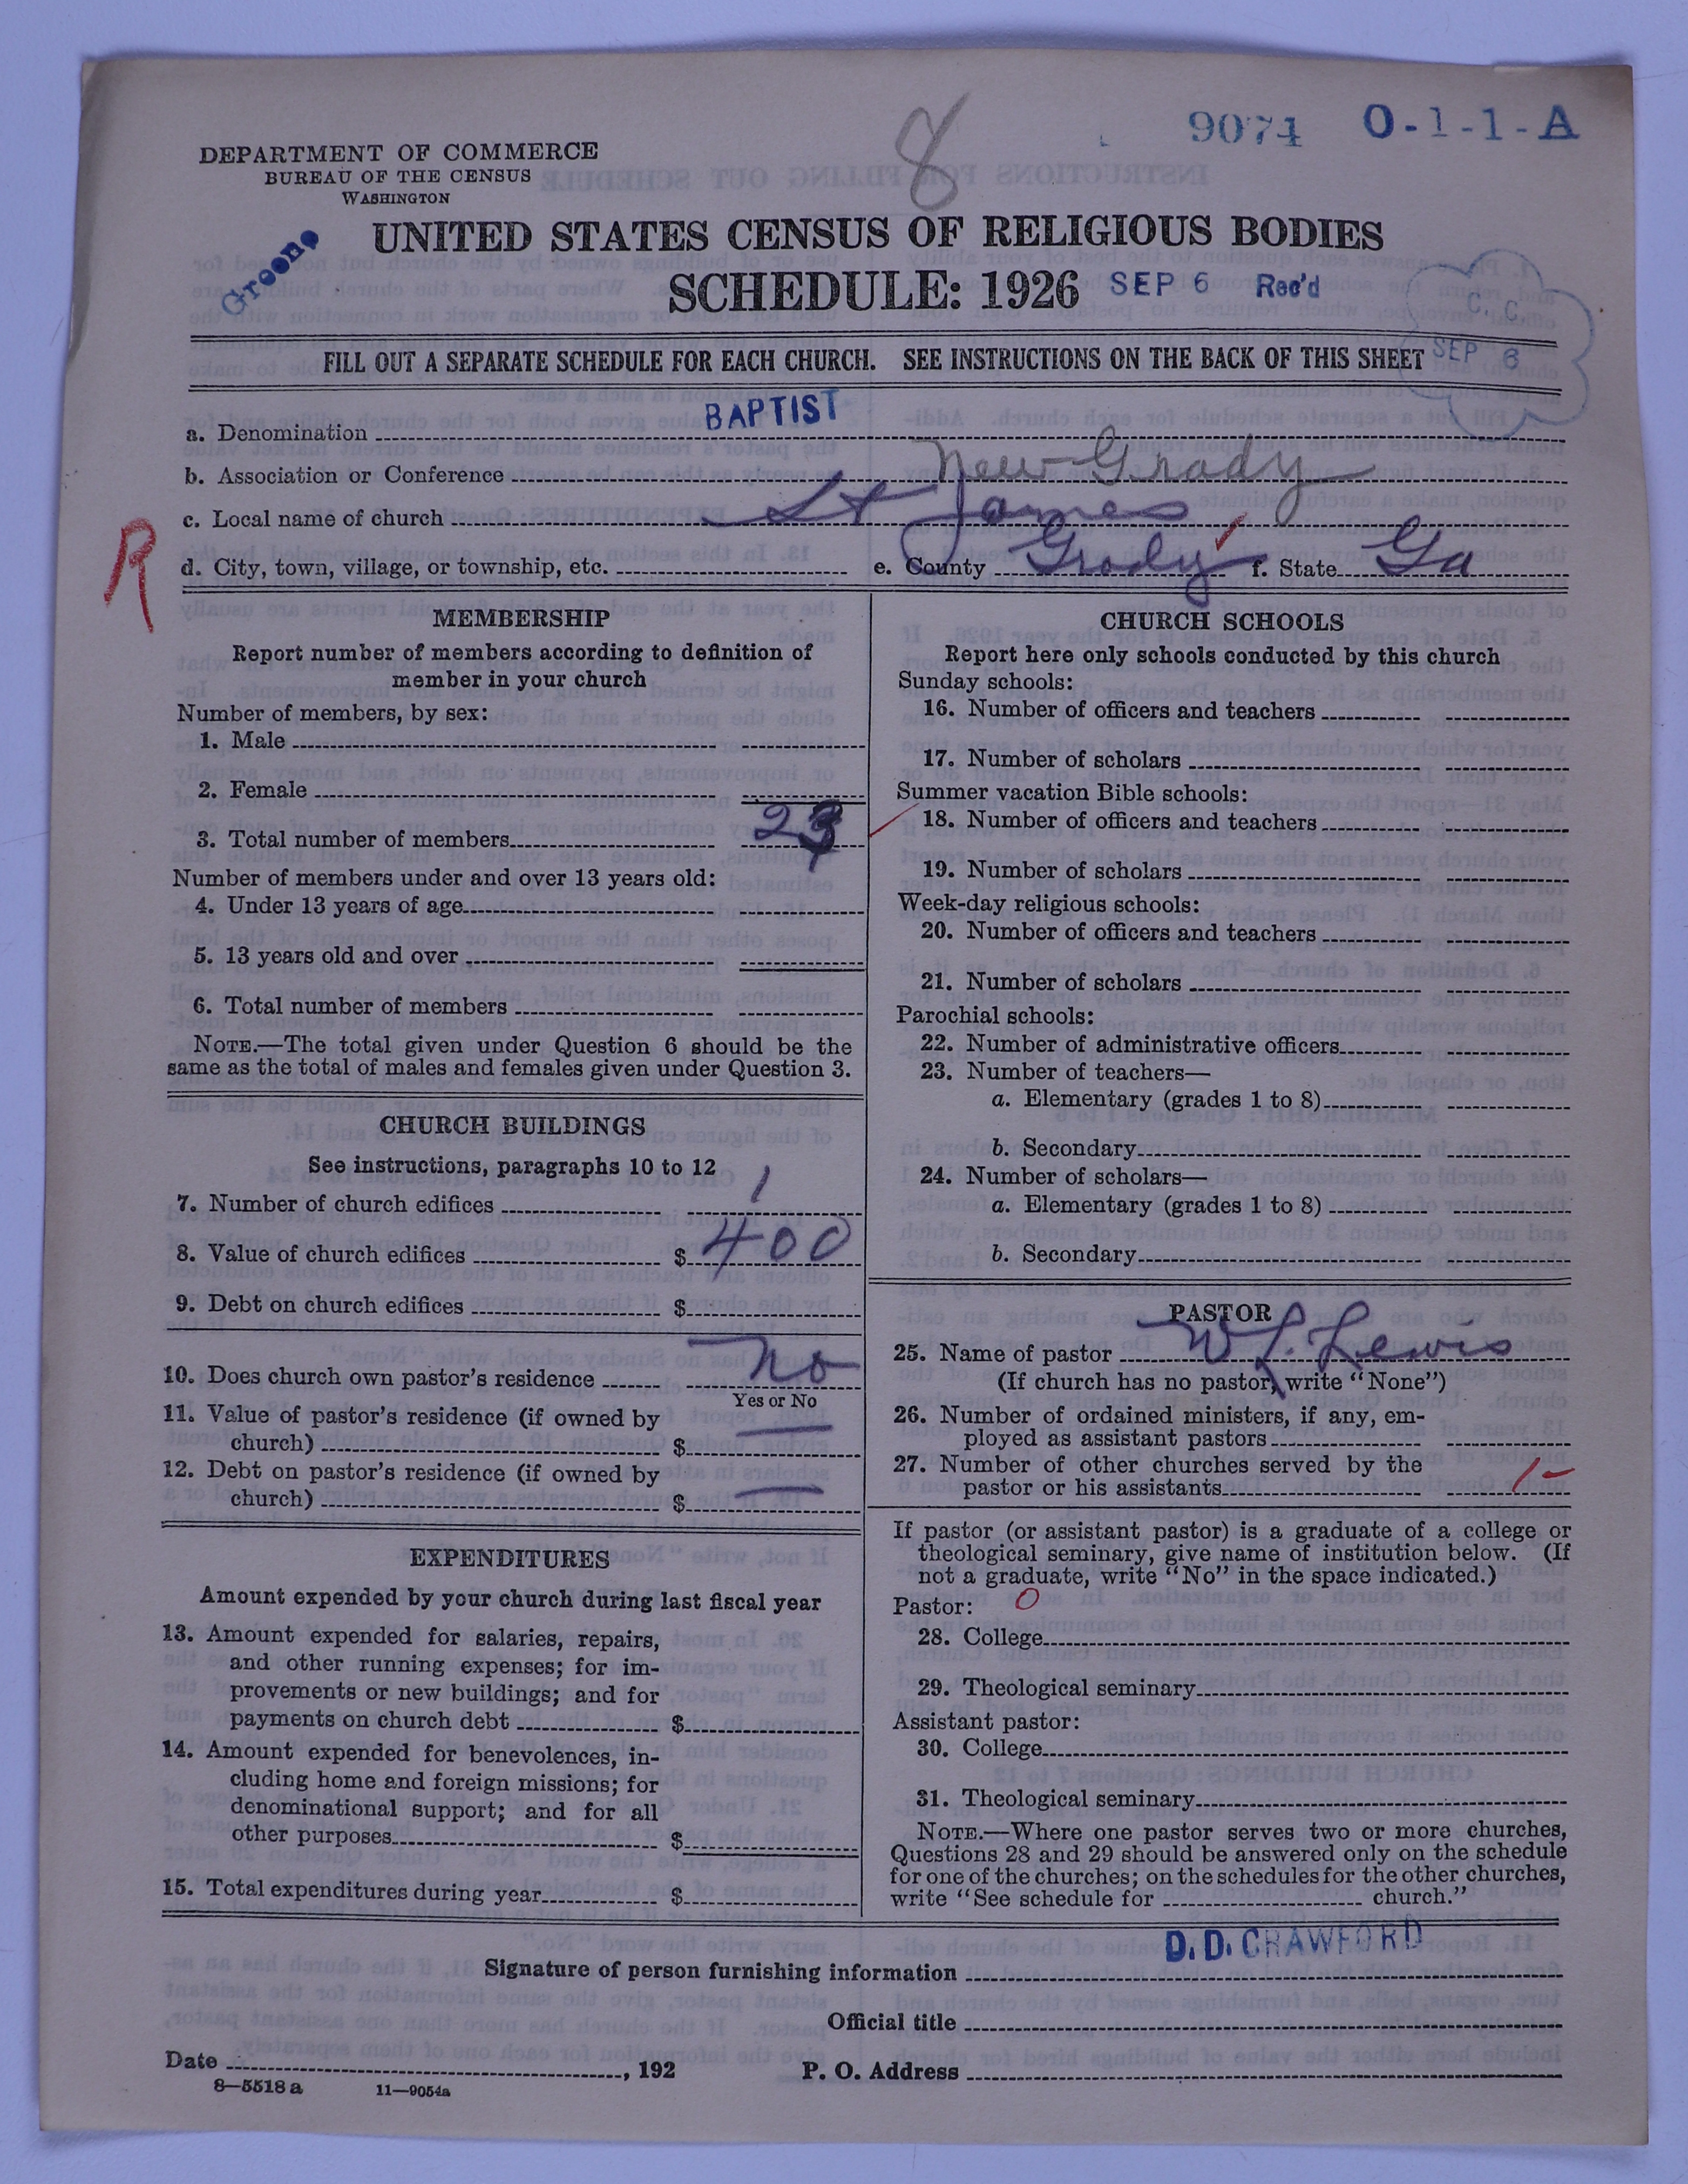 8
9074 O-1-1-A
DEPARTMENT OF COMMERCE
BUREAU OF THE CENSUS
WASHINGTON
Greene
UNITED STATES CENSUS OF RELIGIOUS BODIES
SCHEDULE: 1926 SEP 6 Rec'd
C. C.
SEP 6
FILL OUT A SEPARATE SCHEDULE FOR EACH CHURCH. SEE INSTRUCTIONS ON THE BACK OF THIS SHEET
a. Denomination BAPTIST
b. Association or Conference New Grady
c. Local name of church St James
R
d. City, town, village, or township, etc. e. County Grady f. State Ga
MEMBERSHIP
Report number of members according to definition of
member in your church
Number of members, by sex:
1. Male
2. Female
3. Total number of members
Number of members under and over 13 years old:
4. Under 13 years of age
5. 13 years old and over
6. Total number of members
NOTE.—The total given under Question 6 should be the
same as the total of males and females given under Question 3.
CHURCH BUILDINGS
See instructions, paragraphs 10 to 12
7. Number of church edifices 1
8. Value of church edifices $ 400
9. Debt on church edifices $
10. Does church own pastor's residence No
Yes or No
11. Value of pastor's residence (if owned by
church) $ —
12. Debt on pastor's residence (if owned by
church) $ —
EXPENDITURES
Amount expended by your church during last fiscal year
13. Amount expended for salaries, repairs,
and other running expenses; for im-
provements or new buildings; and for
payments on church debt $
14. Amount expended for benevolences, in-
cluding home and foreign missions; for
denominational support; and for all
other purposes $
15. Total expenditures during year $
CHURCH SCHOOLS
Report here only schools conducted by this church
Sunday schools:
16. Number of officers and teachers
17. Number of scholars
Summer vacation Bible schools:
18. Number of officers and teachers
19. Number of scholars
Week-day religious schools:
20. Number of officers and teachers
21. Number of scholars
Parochial schools:
22. Number of administrative officers
23. Number of teachers—
a. Elementary (grades 1 to 8)
b. Secondary
24. Number of scholars—
a. Elementary (grades 1 to 8)
b. Secondary
PASTOR
25. Name of pastor W L. Lewis
(If church has no pastor, write "None")
26. Number of ordained ministers, if any, em-
ployed as assistant pastors
27. Number of other churches served by the
pastor or his assistants 1-
If pastor (or assistant pastor) is a graduate of a college or
theological seminary, give name of institution below. (If
not a graduate, write "No" in the space indicated.)
Pastor: 0
28. College
29. Theological seminary
Assistant pastor:
30. College
31. Theological seminary
NOTE.—Where one pastor serves two or more churches,
Questions 28 and 29 should be answered only on the schedule
for one of the churches; on the schedules for the other churches,
write "See schedule for church."
Signature of person furnishing information D. D. CRAWFORD
Official title
Date , 192 P. O. Address
8—5518 a 11—9054a